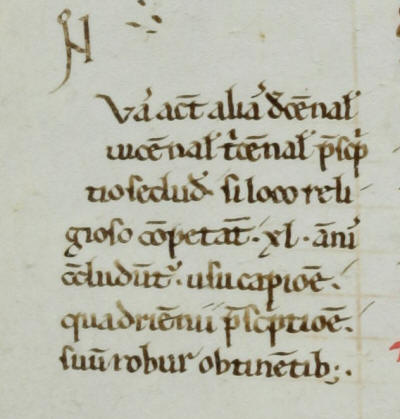 H
Vá act̄ alia᷒ dc̄ēnał
uicēnał tͥcēnał p̄scͥp
tio secluđ si loco reli
gioso cōpetat̄· xl· ānı᷒
c̄cludūt᷒· usucapiōē·
quadriēnii p̄scͥptiōē·
suū robur obtinētib;·